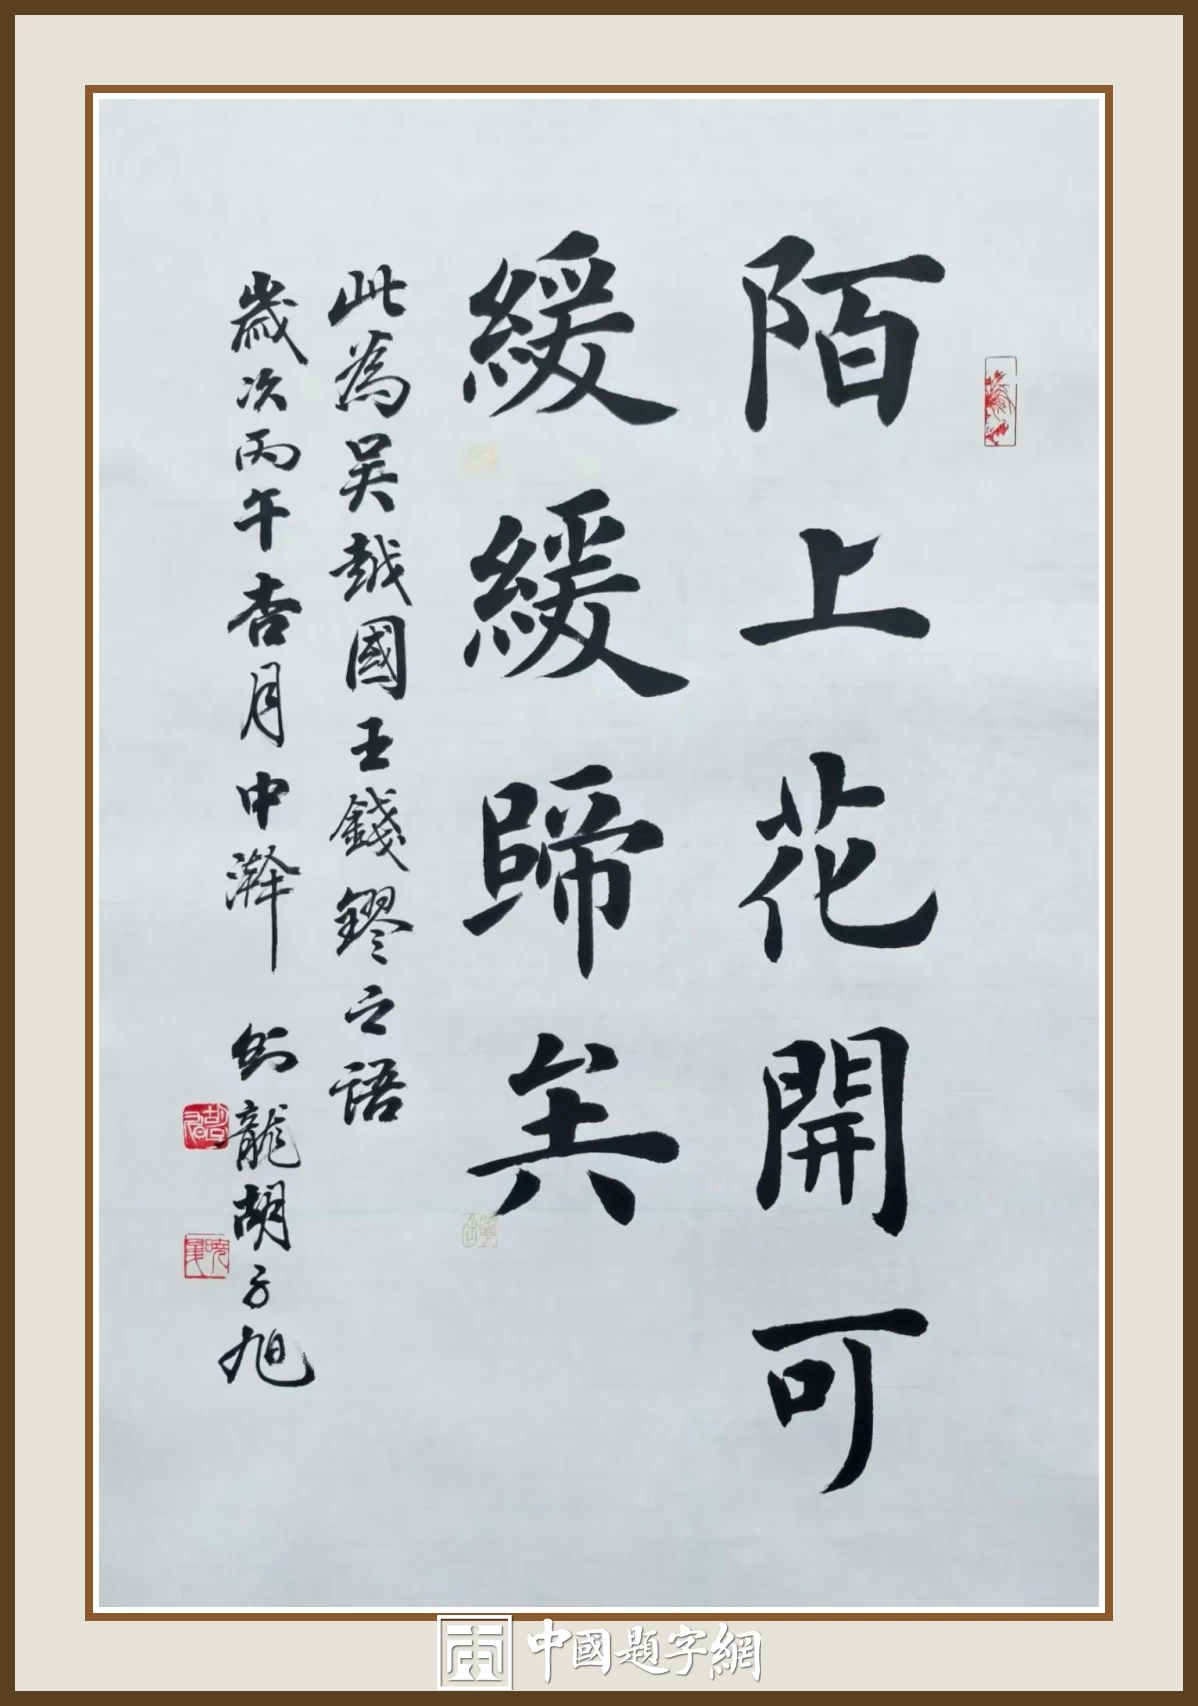 陌上花開可
緩緩歸矣
此為吳越國王錢鏐之語
歲次丙午杏月中澣 龍胡子旭
中國題字網